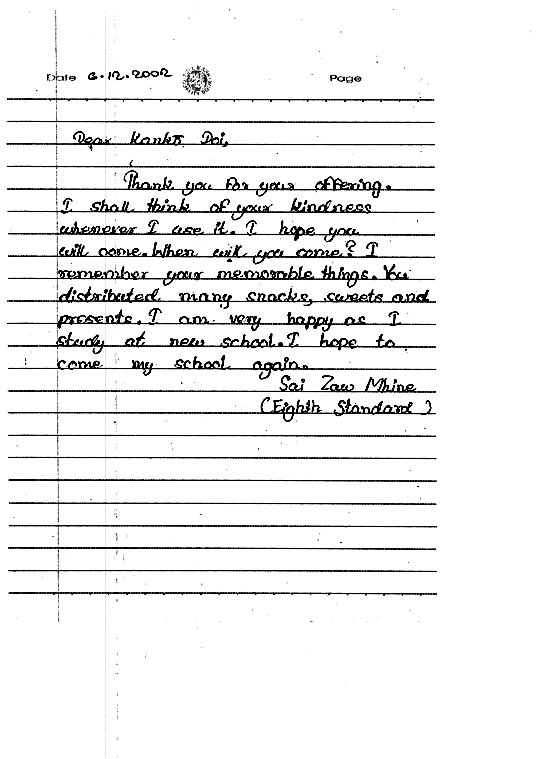 Date 6.12.2002 Page
Dear Kanko Doi,
Thank you for your offering.
I shall think of your kindness
whenever I use it. I hope you
will come. When will you come? I
remember your memorable things. You
distributed many snacks, sweets and
presents. I am very happy as I
study at new school. I hope to
come my school again.
Sai Zaw Mhine
(Eighth Standard)